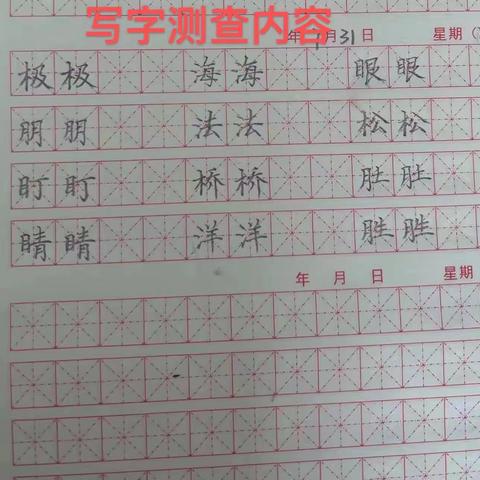 写字测查内容
年 月31日 星期(
极极 海海 眼眼
朋朋 法法 松松
盯盯 桥桥 肚肚
睛睛 洋洋 胜胜
年 月 日 星期